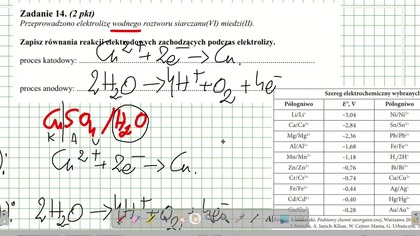 Zadanie 14. (2 pkt)
Przeprowadzono elektrolizę wodnego roztworu siarczanu(VI) miedzi(II).
Zapisz równania reakcji elektrodowych zachodzących podczas elektrolizy.
proces katodowy: Cu²⁺ + 2e⁻ → Cu.
proces anodowy: 2H₂O → 4H⁺ + O₂ + 4e⁻
CuSO₄ / H₂O
K A
Cu²⁺ + 2e⁻ → Cu.
2H₂O → 4H⁺ + O₂ + 4e⁻
Szereg elektrochemiczny wybranych
Półogniwo E°, V Półogniwo
Li/Li⁺ -3,04 Ni/Ni²⁺
Ca/Ca²⁺ -2,84 Sn/Sn²⁺
Mg/Mg²⁺ -2,36 Pb/Pb²⁺
Al/Al³⁺ -1,68 Fe/Fe³⁺
Mn/Mn²⁺ -1,18 H₂/2H⁺
Zn/Zn²⁺ -0,76 Bi/Bi³⁺
Cr/Cr³⁺ -0,74 Cu/Cu²⁺
Fe/Fe²⁺ -0,44 Ag/Ag⁺
Cd/Cd²⁺ -0,40 Hg/Hg²⁺
Co/Co²⁺ -0,28 Au/Au³⁺
Podstawy chemii nieorganicznej, Warszawa